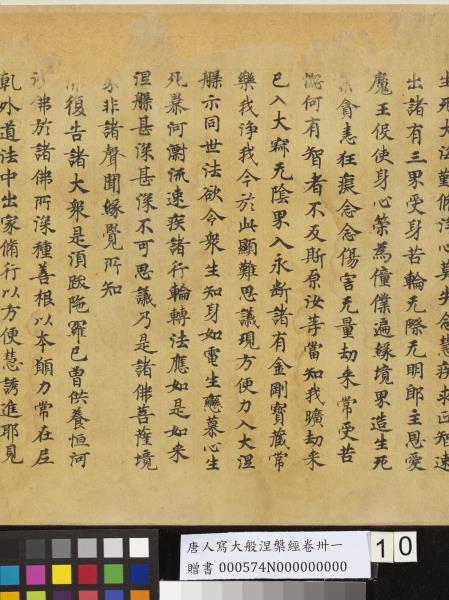 生死大海勤脩淨心莫失念慧疾求正智速
出諸有三界受身苦輪无際无明郎主恩愛
魔王役使身心策為僮僕遍緣境界造生死
業貪恚狂癡念念傷害无量劫來常受苦
惱何有智者不反斯原汝等當知我曠劫来
已入大寂无陰界入永斷諸有金剛寶藏常
樂我淨我今於此顯難思議現方便力入大涅
槃示同世法欲令衆生知身如電生戀慕心生
死暴河漂流速疾諸行輪轉法應如是如来
涅槃甚深甚深不可思議乃是諸佛菩薩境
界非諸聲聞緣覺所知
復告諸大衆是湏跋陁羅已曾供養恒河
沙佛於諸佛所深種善根以本願力常在尼
乹外道法中出家脩行以方便慧誘進耶見
唐人寫大般涅槃經卷卅一
贈書 000574N000000000
10